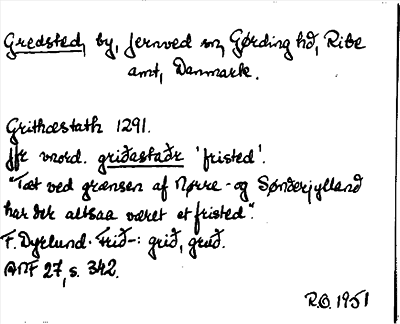 Gredsted, by, Jernved sn, Gørding hd, Ribe
amt, Danmark.
Grithæstath 1291.
jfr vnord. griðastaðr 'fristed'.
"Tæt ved grænsen af Nørre- og Sønderjylland
har der altsaa været et fristed".
F. Dyrlund. Frið-: grið, gruð.
ANF 27, s. 342.
R.O. 1951